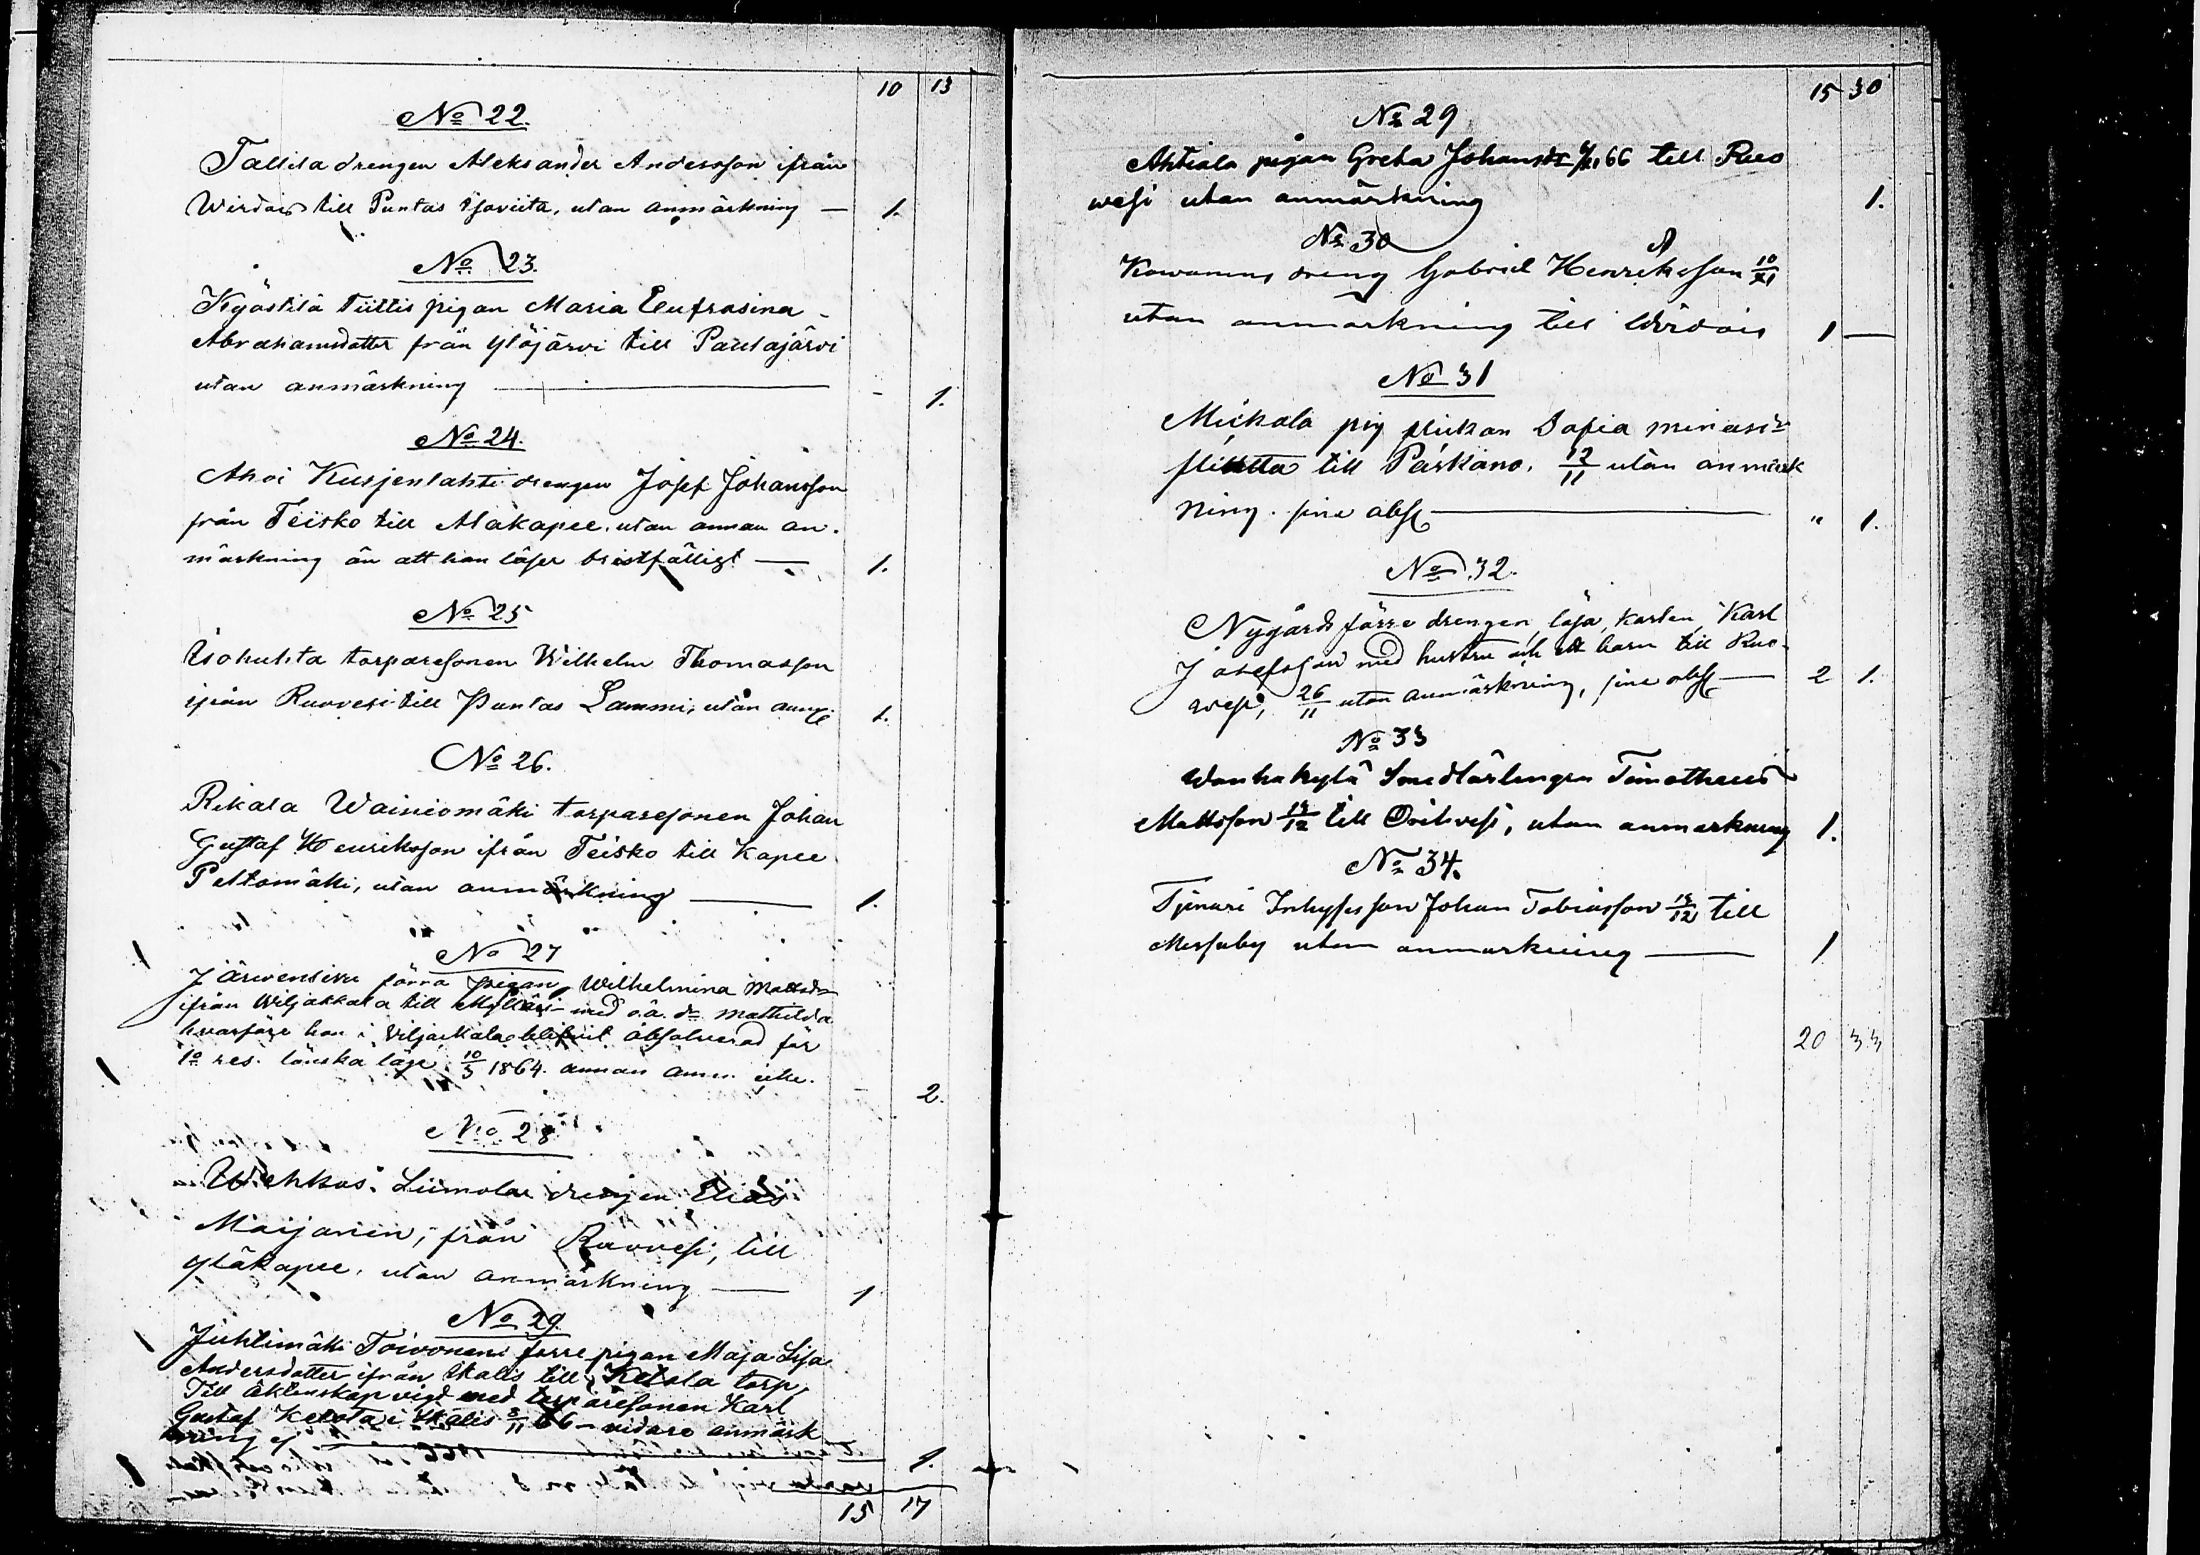 10 13
No 22.
Tallila drengen Aleksander Andersson ifrån
Wirdois till Puntas Isoviita, utan anmärkning — 1.
No 23.
Kyöstilä Tiittis pigan Maria Eufrosina
Abrahamsdotter från Ylöjärvi till Paulajärvi
utan anmärkning — - 1.
No 24.
Ahoi Kusjenlahti drengen Josef Johansson
från Teisko till Alakapee. utan annan an-
märkning än att han läser bristfälligt — 1.
No 25
Isohuhta torparesonen Wilhelm Thomasson
ifrån Ruovesi till Puntas Lammi, utan 1.
No 26.
Rikala Wainiomäki torparesonen Johan
Gustaf Henriksson ifrån Teisko till Kapee
Peltomäki, utan anmärkning — 1.
No 27
Järwensivu förra pigan Wilhelmina Mattsdr
ifrån Wiljakkala till Mylläri med o.ä. dr Mathilda
hvarföre hon i Viljakkala blifvit absolverad för
1o res. lönska läge 10/5 1864. annan anm. icke.
2.
No 28
Wehkas Liimola drengen Elias
Maijanen, från Ruovesi, till
Yläkapee, utan anmärkning — 1
No 29.
Juhtimäki Toivonens förre pigan Maja Lisa
Andersdotter ifrån Ikalis till Ketola torp,
Till äktenskap vigd med torparesonen Karl
Gustaf Ketola i Ikalis 8/11 66 — vidare anmärk
ning ej 1.
15 17
15 30
No 29
Ahtiala pigan Greta Johansdr 66 till Ruo
wesi utan anmärkning 1.
No 30
Kowanens dreng Gabriel Henriksson 10/XI
utan anmärkning till Wirdois 1 —
No 31
Mickala pig flickan Sofia
till Parkano, 12/11 utan anmärk
ning. sine abs — " 1.
No 32.
Nygårds förre drengen, lösa karlen, Karl
Josefsson med hustru och ett barn till Ruo-
wesi, 26/11 utan anmärkning, sine abs — 2 1.
No 33
Wanhakylä Smedlärlingen Timotheus
Mattsson 14/12 till Orihvesi, utan anmärkning 1.
No 34.
Tjenare Inhysesson Johan Tobiasson 14/12 till
Messuby utan anmärkning — 1
20 33